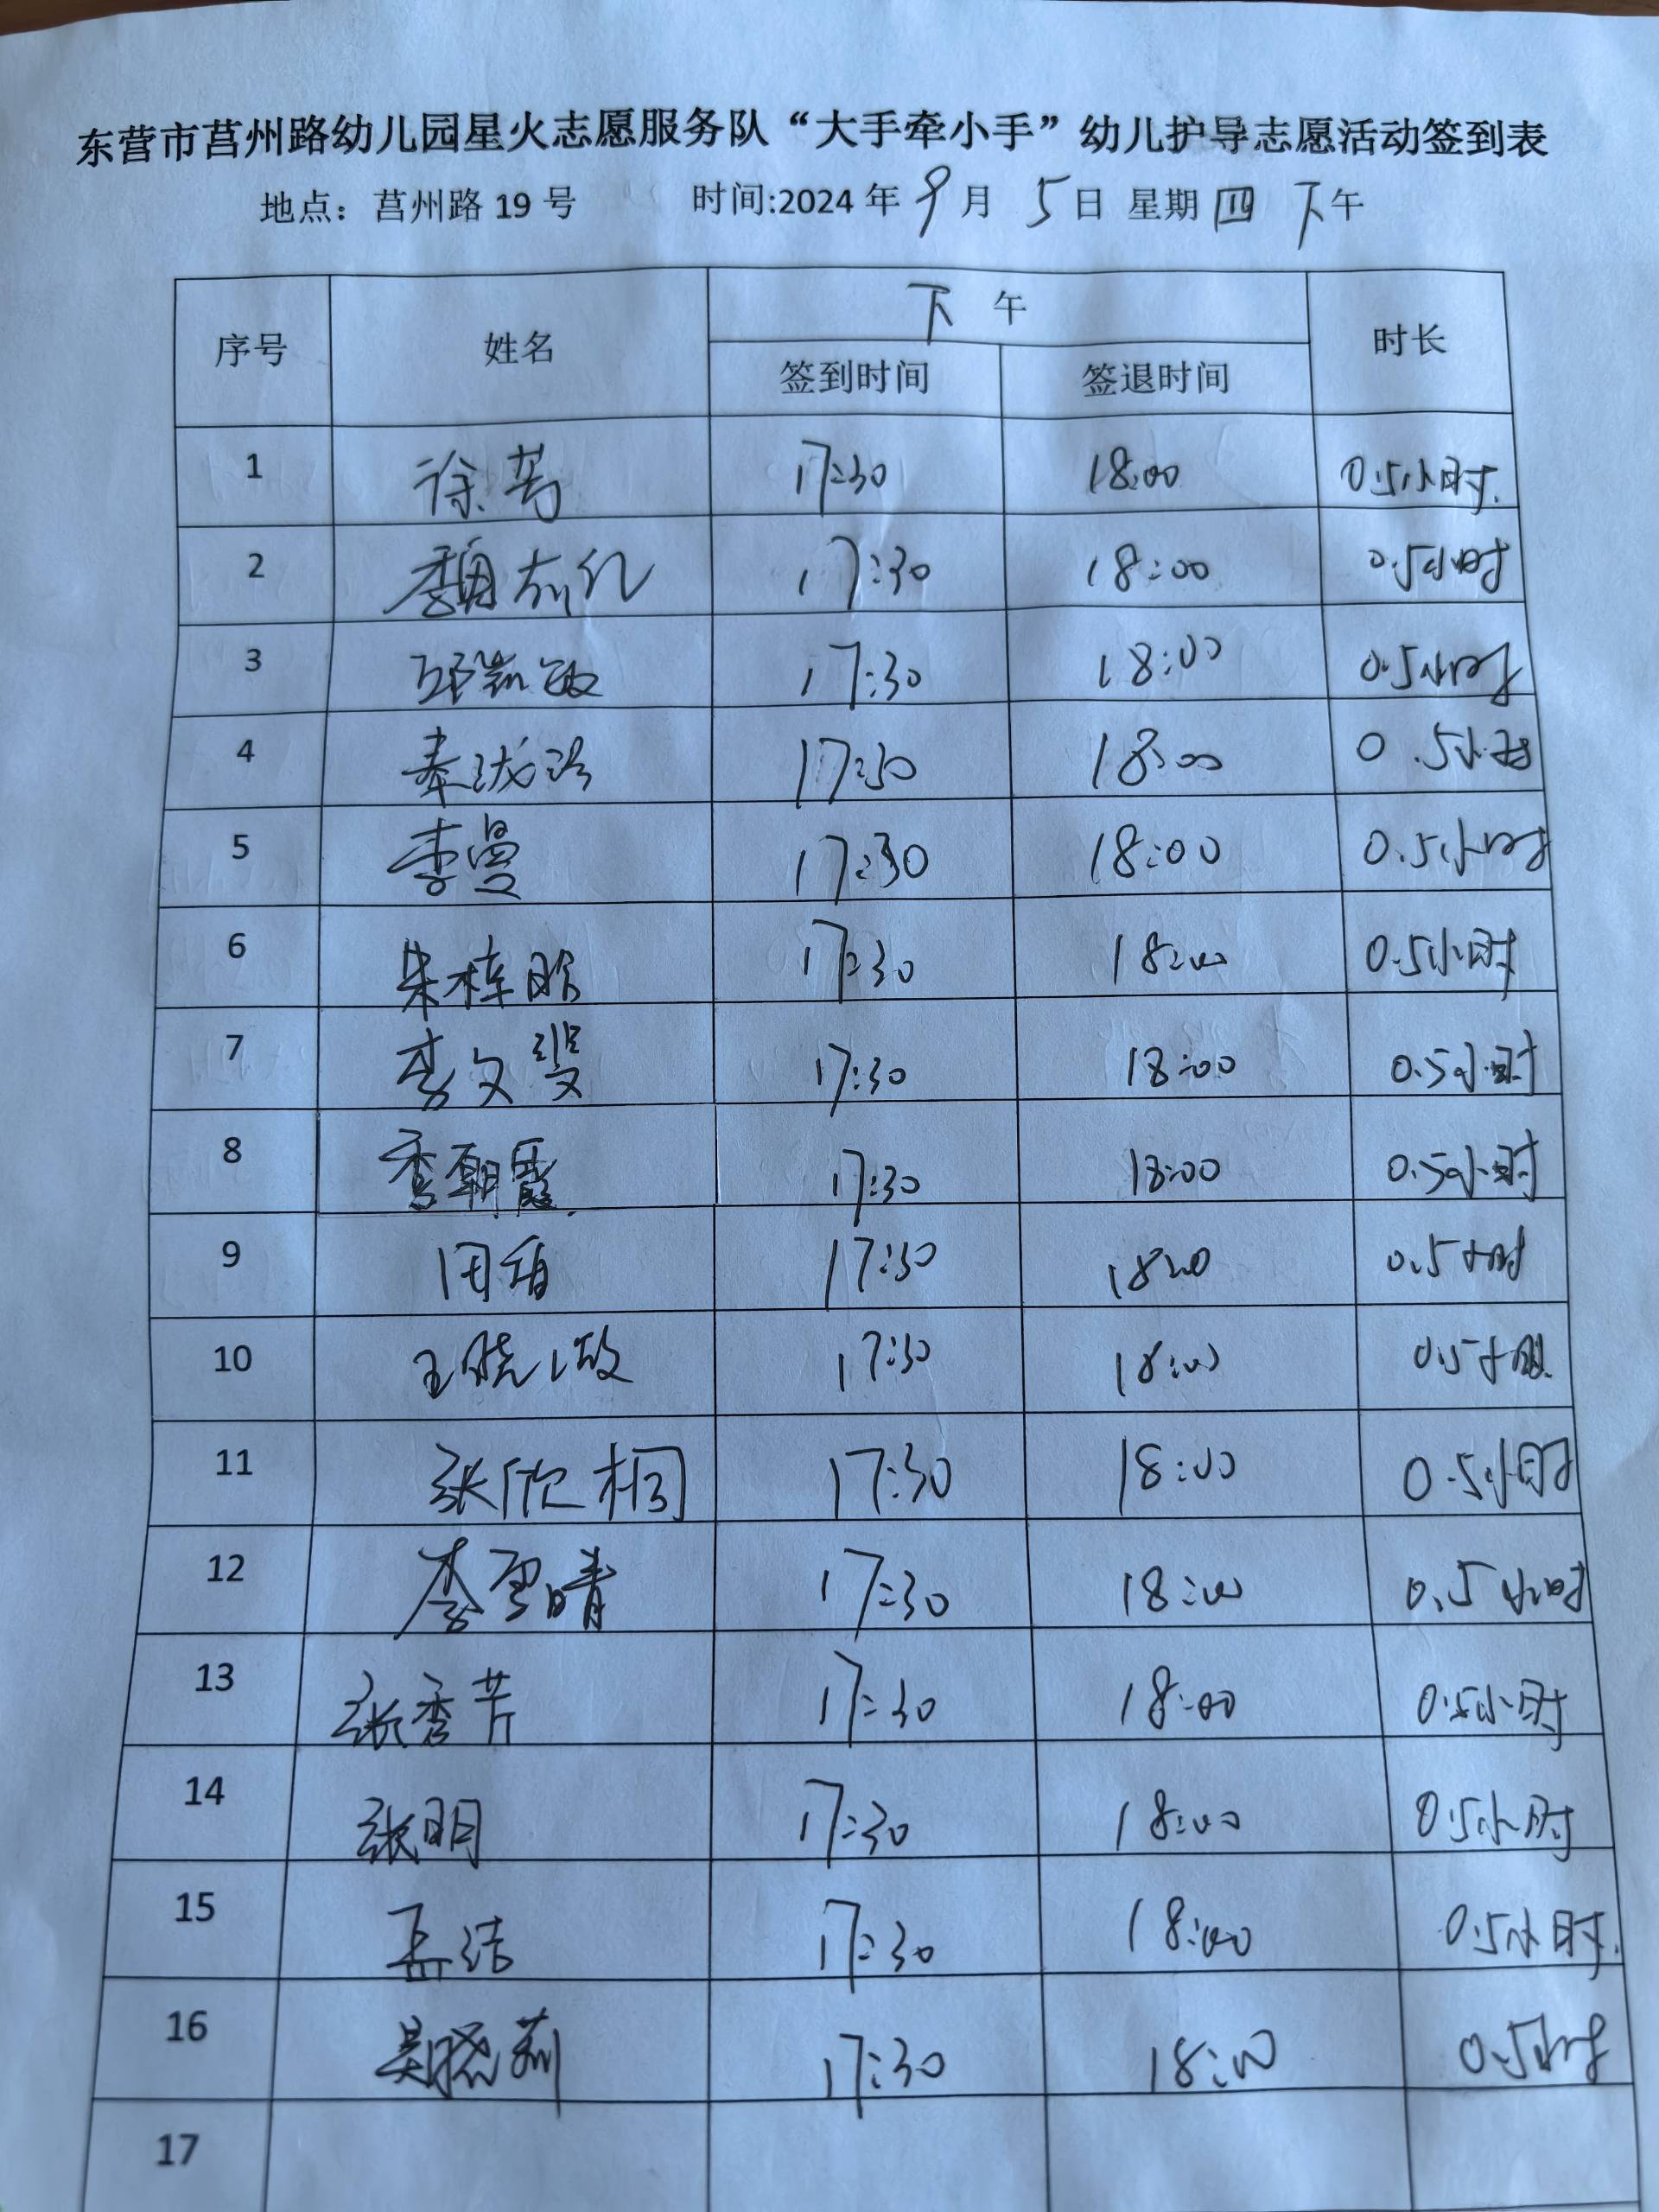 东营市莒州路幼儿园星火志愿服务队“大手牵小手”幼儿护导志愿活动签到表
地点：莒州路19号 时间:2024年9月5日 星期四 下午
序号 姓名 下午 时长
签到时间 签退时间
1 徐芳 17:30 18:00 0.5小时.
2 17:30 18:00 0.5小时
3 邱凯敏 17:30 18:00 0.5小时
4 秦泷浴 17:30 18:00 0.5小时
5 李曼 17:30 18:00 0.5小时
6 朱梓晗 17:30 18:00 0.5小时
7 李文斐 17:30 18:00 0.5小时
8 李朝霞 17:30 18:00 0.5小时
9 17:30 18:00 0.5小时
10 王晓敏 17:30 18:00 0.5小时
11 张欣桐 17:30 18:00 0.5小时
12 李雪晴 17:30 18:00 0.5小时
13 张秀芹 17:30 18:00 0.5小时
14 张明 17:30 18:00 0.5小时
15 孟洁 17:30 18:00 0.5小时.
16 吴晓莉 17:30 18:00 0.5小时
17